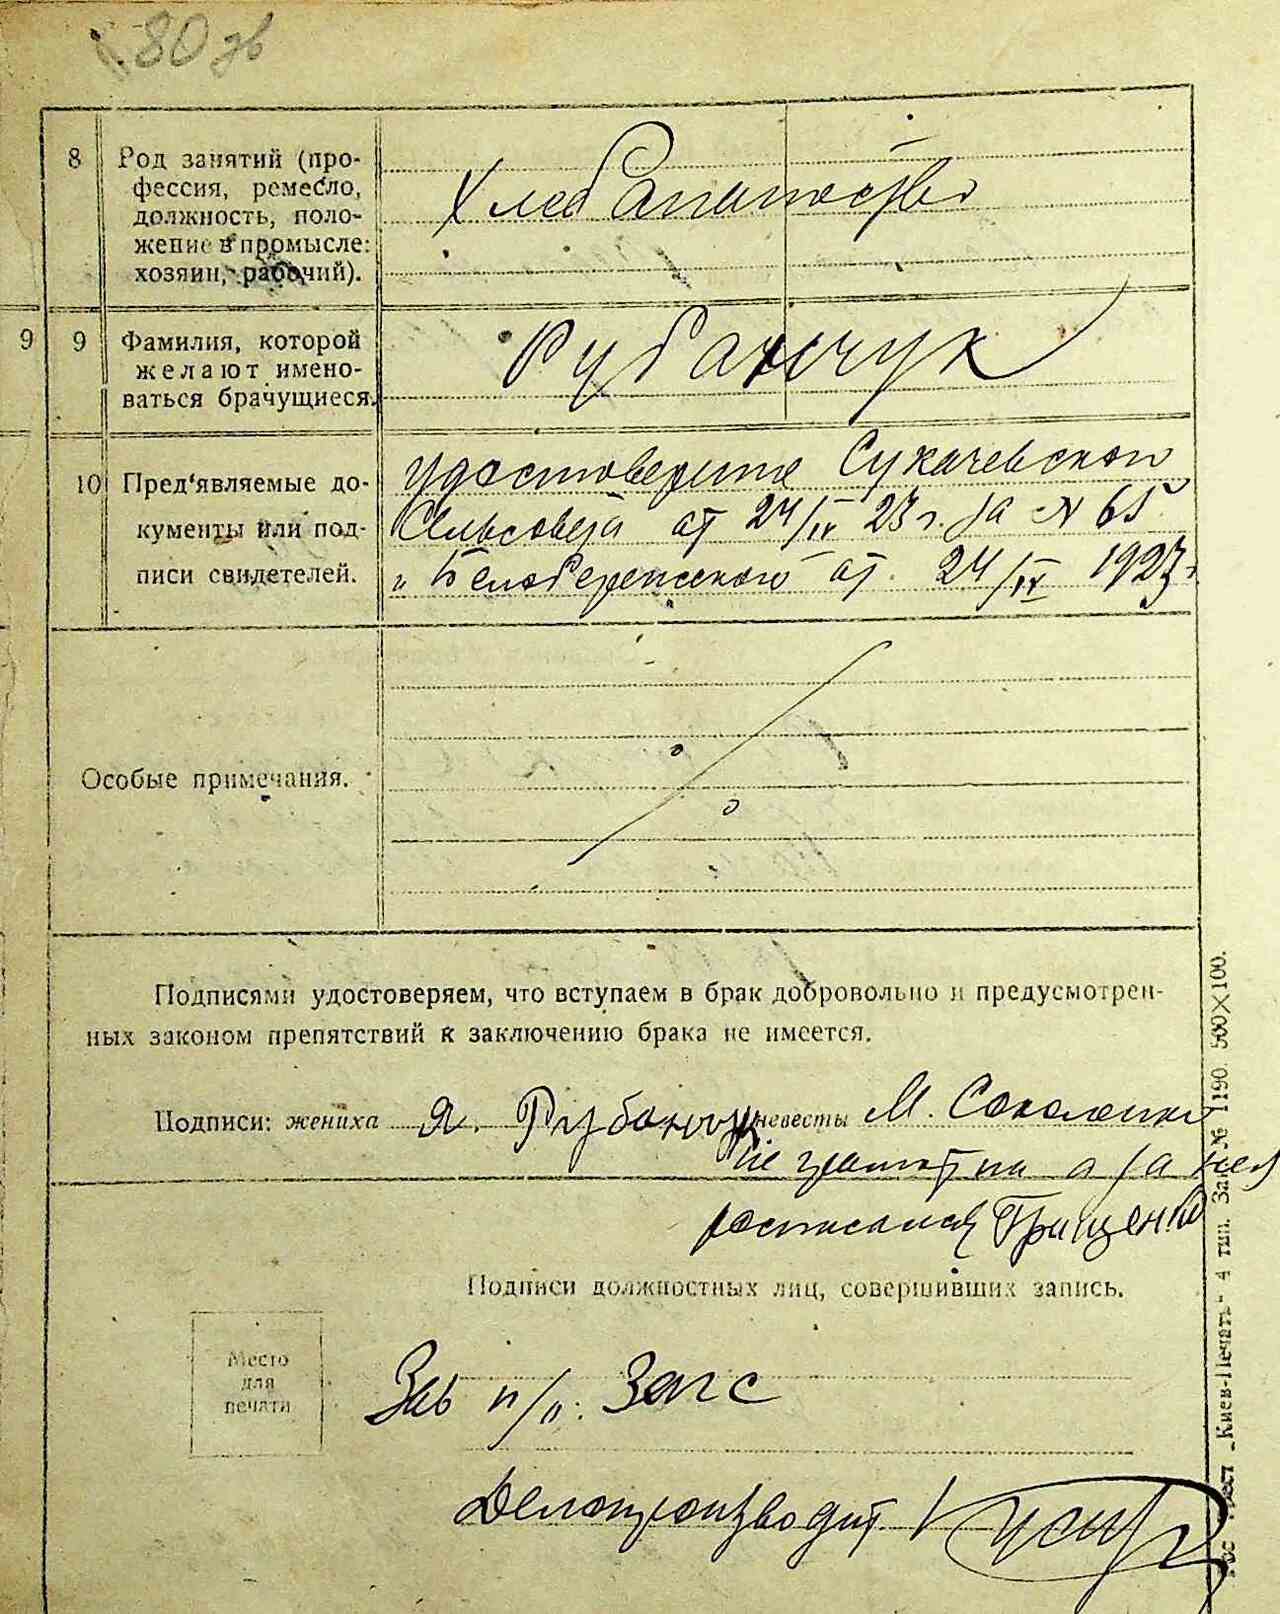 80 зв
8 Род занятий (про-
фессия, ремесло,
должность, поло-
жение в промысле:
хозяин, рабочий).
Хлебапашество
9 9 Фамилия, которой
желают имено-
ваться брачущиеся.
Рубанчук
10 Пред'являемые до-
кументы или под-
писи свидетелей.
удостоверение Сукачевского
Сельсовета от 24/IV 23 г. за N 65
и Белобережского от. 24/IV 1923 г
Особые примечания.
Подписями удостоверяем, что вступаем в брак добровольно и предусмотрен-
ных законом препятствий к заключению брака не имеется.
Подписи: жениха Я. Рубанчук невесты М. Соколенко
не грамотна а за нея
росписался Грищенко
Подписи должностных лиц, совершивших запись.
Место
для
печати
Зав п/о. Загс
Делопроизводит
"Киев-Печать" 4 тип. Зак. № 1190. 500×100.